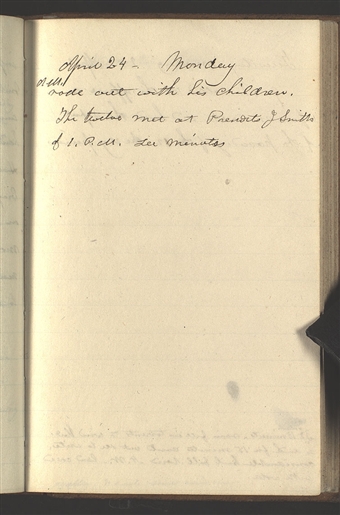 April 24 - Monday
A.M.
rode out with his children.
The twelve met at Presdts J Smiths
at 1. P.M. see minutes